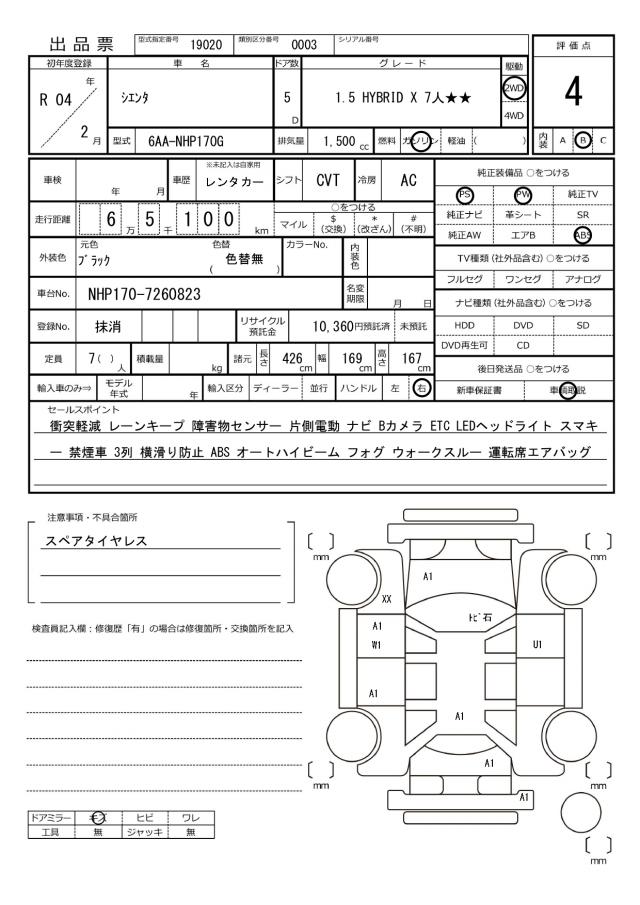 出品票 型式指定番号 19020 類別区分番号 0003 シリアル番号
評価点
4
内装 A B C
初年度登録 車名 ドア数 グレード 駆動
R 04 年 2 月 シエンタ 5 D 1.5 HYBRID X 7人★★ 2WD
4WD
型式 6AA-NHP170G 排気量 1,500 cc 燃料 ガソリン 軽油 ( )
車検 年 月 車歴 ※未記入は自家用 レンタカー シフト CVT 冷房 AC
走行距離 6 万 5 千 1 0 0 km
○をつける
マイル $ (交換) * (改ざん) # (不明)
外装色 元色 ブラック 色替 ( 色替無 ) カラーNo. 内装色
車台No. NHP170-7260823 名変期限 月 日
登録No. 抹消 リサイクル預託金 10,360円預託済 未預託
定員 7( ) 人 積載量 kg 諸元 長さ 426 cm 幅 169 cm 高さ 167 cm
輸入車のみ⇒ モデル年式 年 輸入区分 ディーラー 並行 ハンドル 左 右
純正装備品 ○をつける
PS PW 純正TV
純正ナビ 革シート SR
純正AW エアB ABS
TV種類 (社外品含む) ○をつける
フルセグ ワンセグ アナログ
ナビ種類 (社外品含む) ○をつける
HDD DVD SD
DVD再生可 CD
後日発送品 ○をつける
新車保証書 車輌取説
セールスポイント
衝突軽減 レーンキープ 障害物センサー 片側電動 ナビ Bカメラ ETC LEDヘッドライト スマキ
ー 禁煙車 3列 横滑り防止 ABS オートハイビーム フォグ ウォークスルー 運転席エアバッグ
注意事項・不具合箇所
スペアタイヤレス
検査員記入欄：修復歴「有」の場合は修復箇所・交換箇所を記入
mm mm
A1
XX
トビ石
A1
W1 U1
A1
A1
A1
mm mm
A1
mm
ドアミラー キズ ヒビ ワレ
工具 無 ジャッキ 無